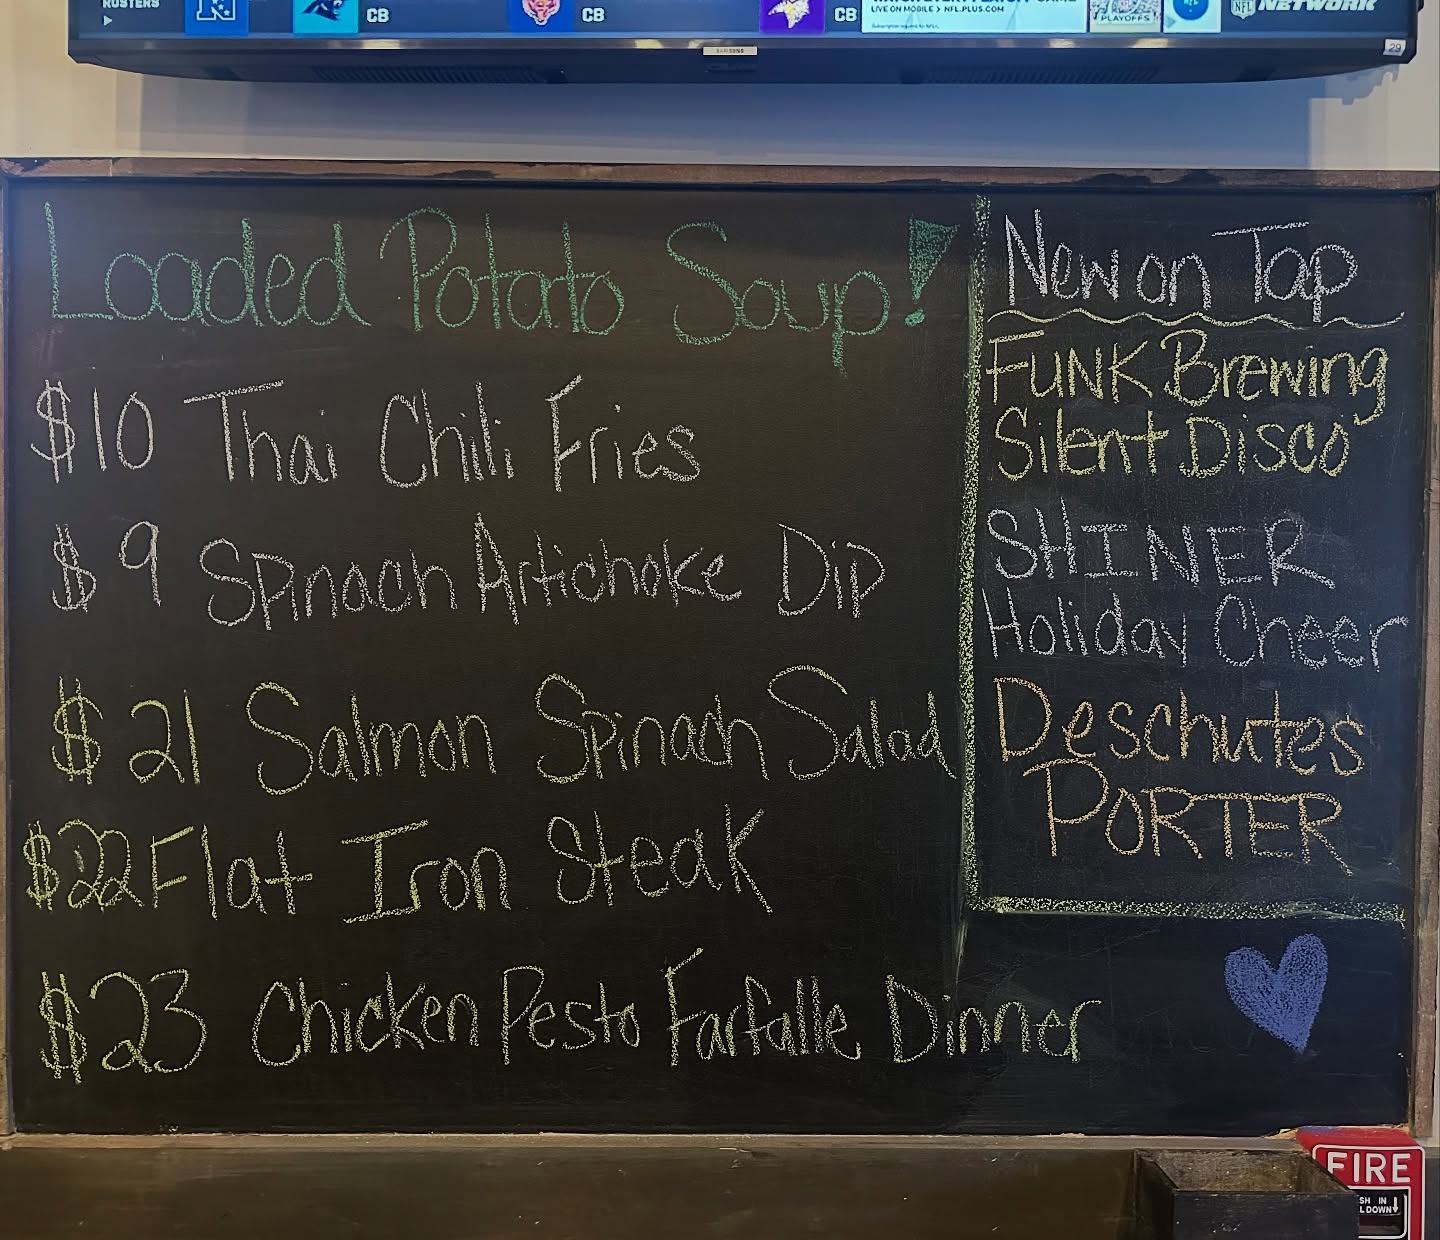 ROSTERS
CB
CB
CB
LIVE ON MOBILE > NFL.PLUS.COM
PLAYOFFS
NFL
NETWORK
SAMSUNG
29
Loaded Potato Soup!
$10 Thai Chili Fries
$9 Spinach Artichoke Dip
$21 Salmon Spinach Salad
$22 Flat Iron Steak
$23 Chicken Pesto Farfalle Dinner
New on Tap
FUNK Brewing
Silent Disco
SHINER
Holiday Cheer
Deschutes
PORTER
FIRE
SH IN
L DOWN